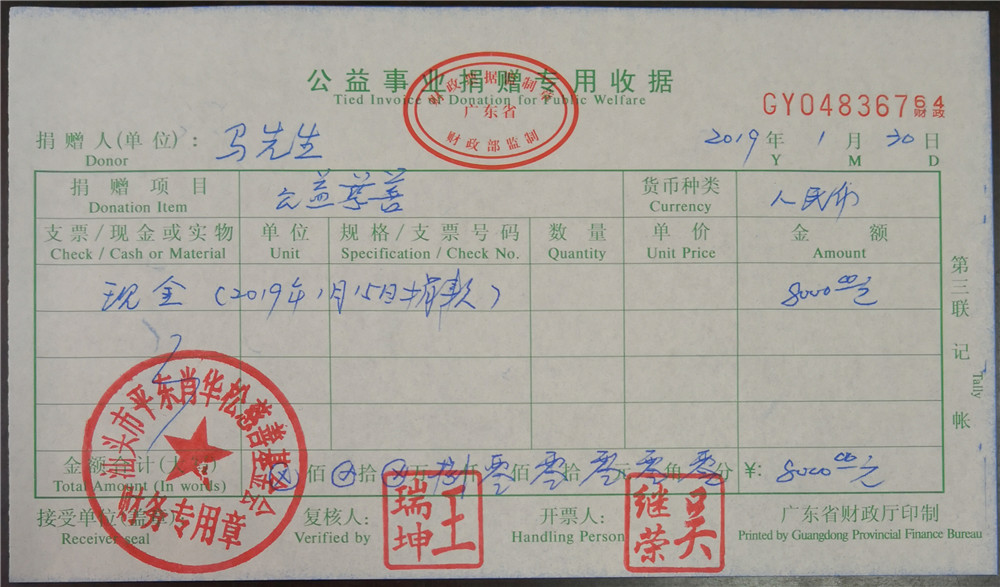 公益事业捐赠专用收据
Tied Invoice of Donation for Public Welfare
财政票据监制章
广东省
财政部监制
GY04836764
财政
捐赠人(单位): 马先生
Donor
2019年 1月 30日
Y M D
捐赠项目 公益慈善 货币种类 人民币
Donation Item Currency
支票/现金或实物 单位 规格/支票号码 数量 单价 金额
Check / Cash or Material Unit Specification / Check No. Quantity Unit Price Amount
现金 (2019年1月15日捐款) 8000.00元
第三联 记帐
Tally
金额合计(大写) ⊗佰⊗拾⊗万捌仟零佰零拾零元零角零分 ¥: 8000.00元
Total Amount (In words)
汕头市平东肖华松慈善基金会
财务专用章
接受单位(盖章) 复核人: 王瑞坤 开票人: 吴继荣 广东省财政厅印制
Receiver seal Verified by Handling Person Printed by Guangdong Provincial Finance Bureau